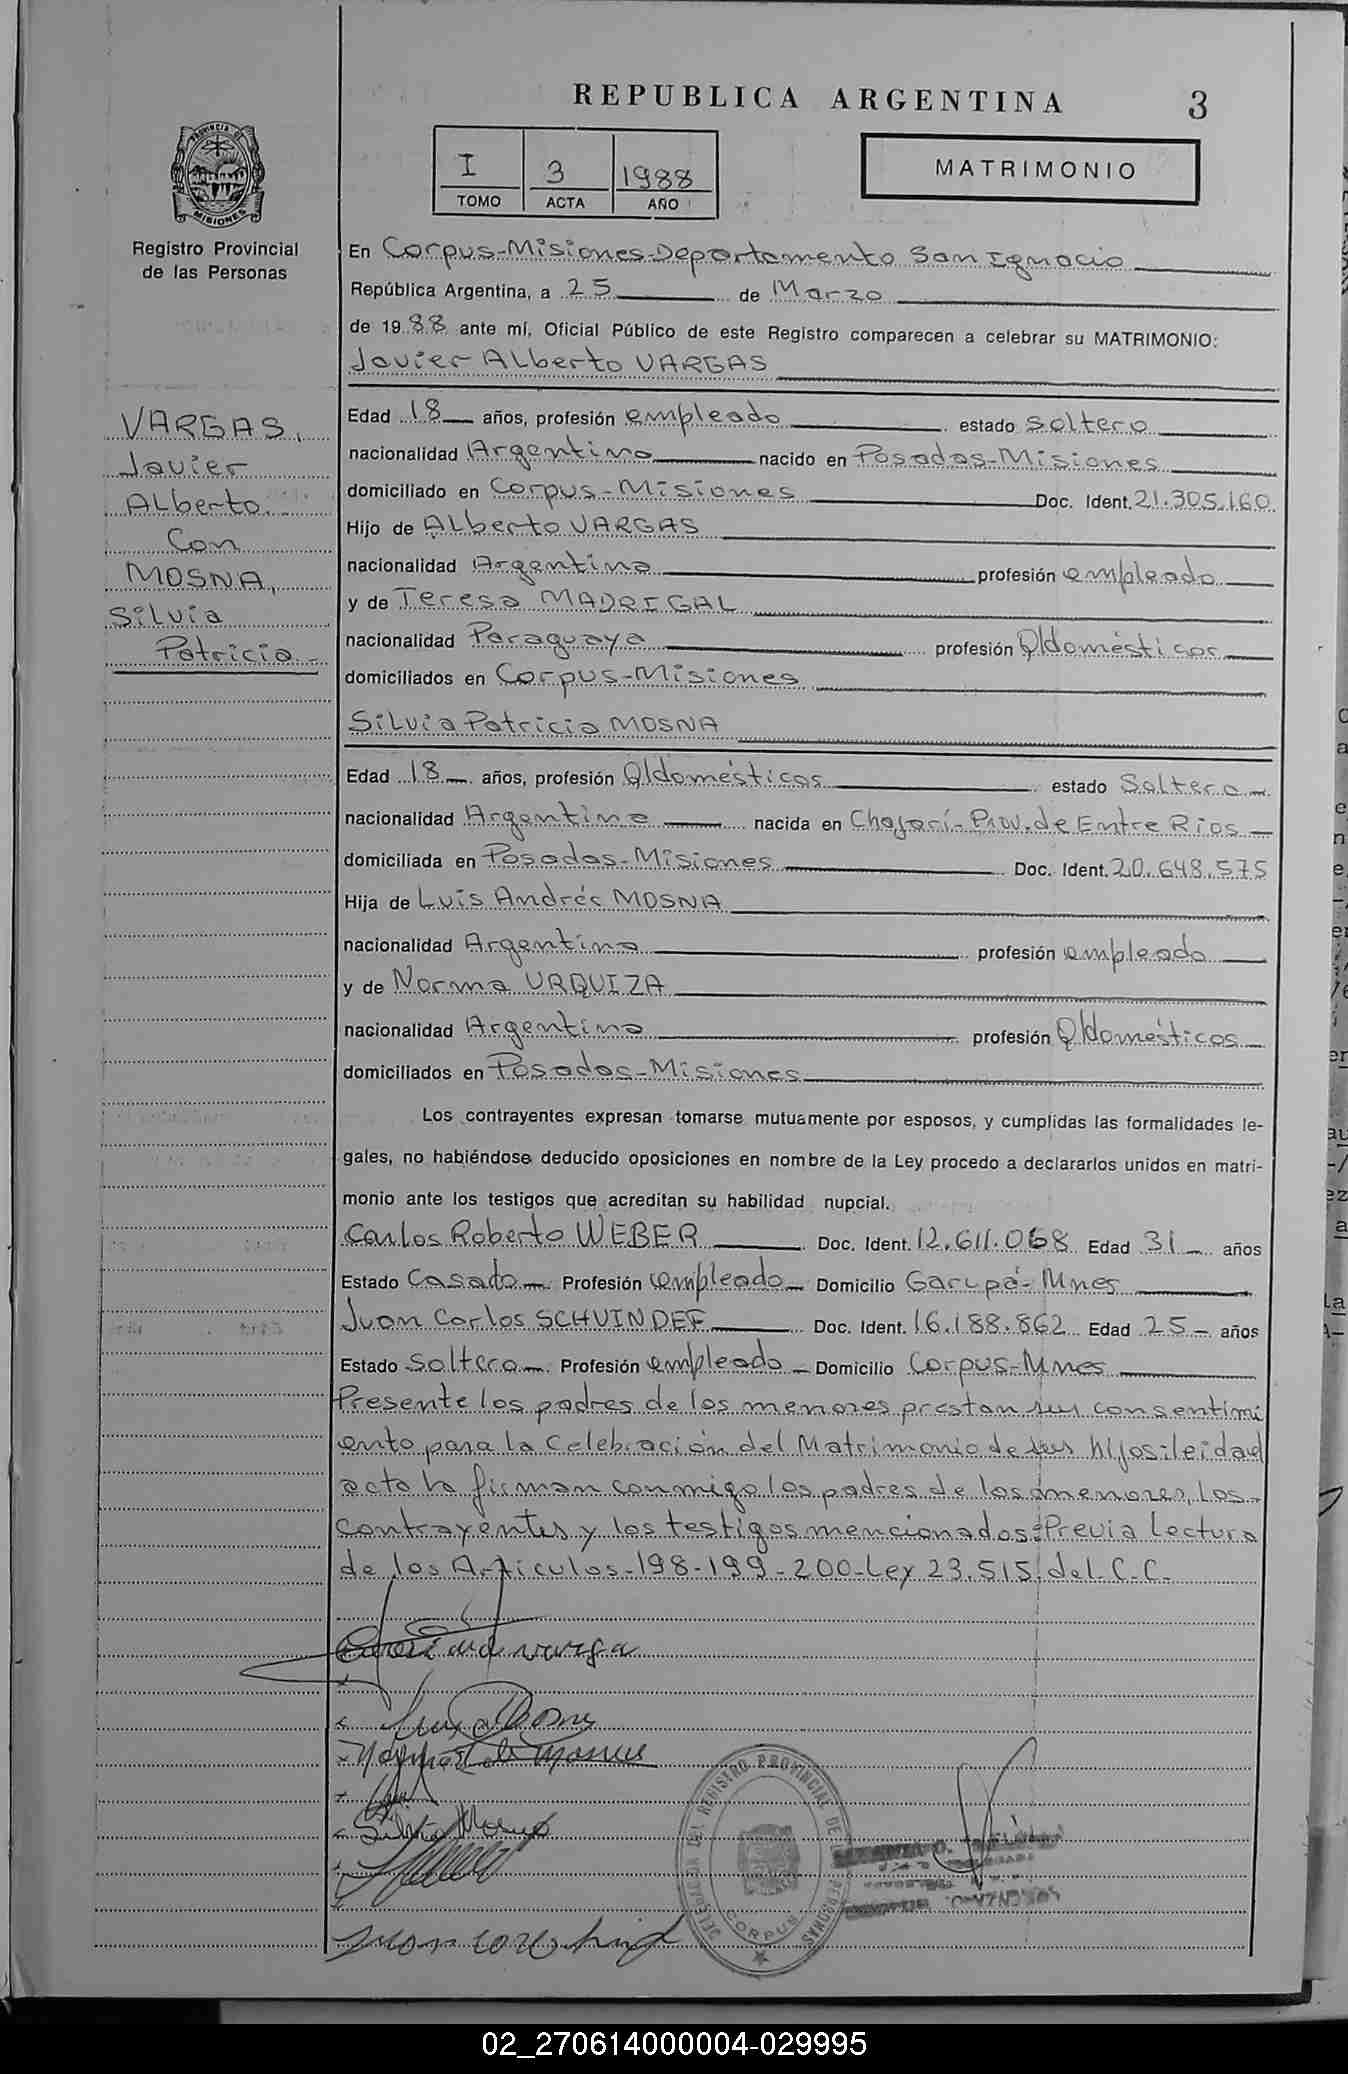 REPUBLICA ARGENTINA 3
PROVINCIA DE MISIONES
Registro Provincial
de las Personas
I 3 1988
TOMO ACTA AÑO
MATRIMONIO
VARGAS,
Javier
Alberto
Con
MOSNA,
Silvia
Patricia
En Corpus-Misiones-Departamento San Ignacio
República Argentina, a 25 de Marzo
de 1988 ante mí, Oficial Público de este Registro comparecen a celebrar su MATRIMONIO:
Javier Alberto VARGAS
Edad 18 años, profesión empleado estado soltero
nacionalidad Argentina nacido en Posadas-Misiones
domiciliado en Corpus-Misiones Doc. Ident. 21.305.160
Hijo de Alberto VARGAS
nacionalidad Argentina profesión empleado
y de Teresa MADRIGAL
nacionalidad Paraguaya profesión Q/domésticos
domiciliados en Corpus-Misiones
Silvia Patricia MOSNA
Edad 18 años, profesión Q/domésticos estado Soltera
nacionalidad Argentina nacida en Chajarí-Prov. de Entre Rios
domiciliada en Posadas-Misiones Doc. Ident. 20.648.575
Hija de Luis Andrés MOSNA
nacionalidad Argentina profesión empleado
y de Norma URQUIZA
nacionalidad Argentina profesión Q/domésticos
domiciliados en Posadas-Misiones
Los contrayentes expresan tomarse mutuamente por esposos, y cumplidas las formalidades le-
gales, no habiéndose deducido oposiciones en nombre de la Ley procedo a declararlos unidos en matri-
monio ante los testigos que acreditan su habilidad nupcial.
Carlos Roberto WEBER Doc. Ident. 12.611.068 Edad 31 años
Estado Casado Profesión empleado Domicilio Garupá-Mnes
Juan Carlos SCHVINDEF Doc. Ident. 16.188.862 Edad 25 años
Estado soltero Profesión empleado Domicilio Corpus-Mnes
Presente los padres de los menores prestan sus consentimi
ento para la Celebración del Matrimonio de sus hijos: leidad
acta la firman conmigo los padres de los menores, los
contrayentes y los testigos mencionados: Previa Lectura
de los Artículos-198-199-200-Ley 23.515 del C.C.
varga
Silvia Mosna
DELEGACION DEL REGISTRO PROVINCIAL DE LAS PERSONAS
CORPUS
02_270614000004-029995